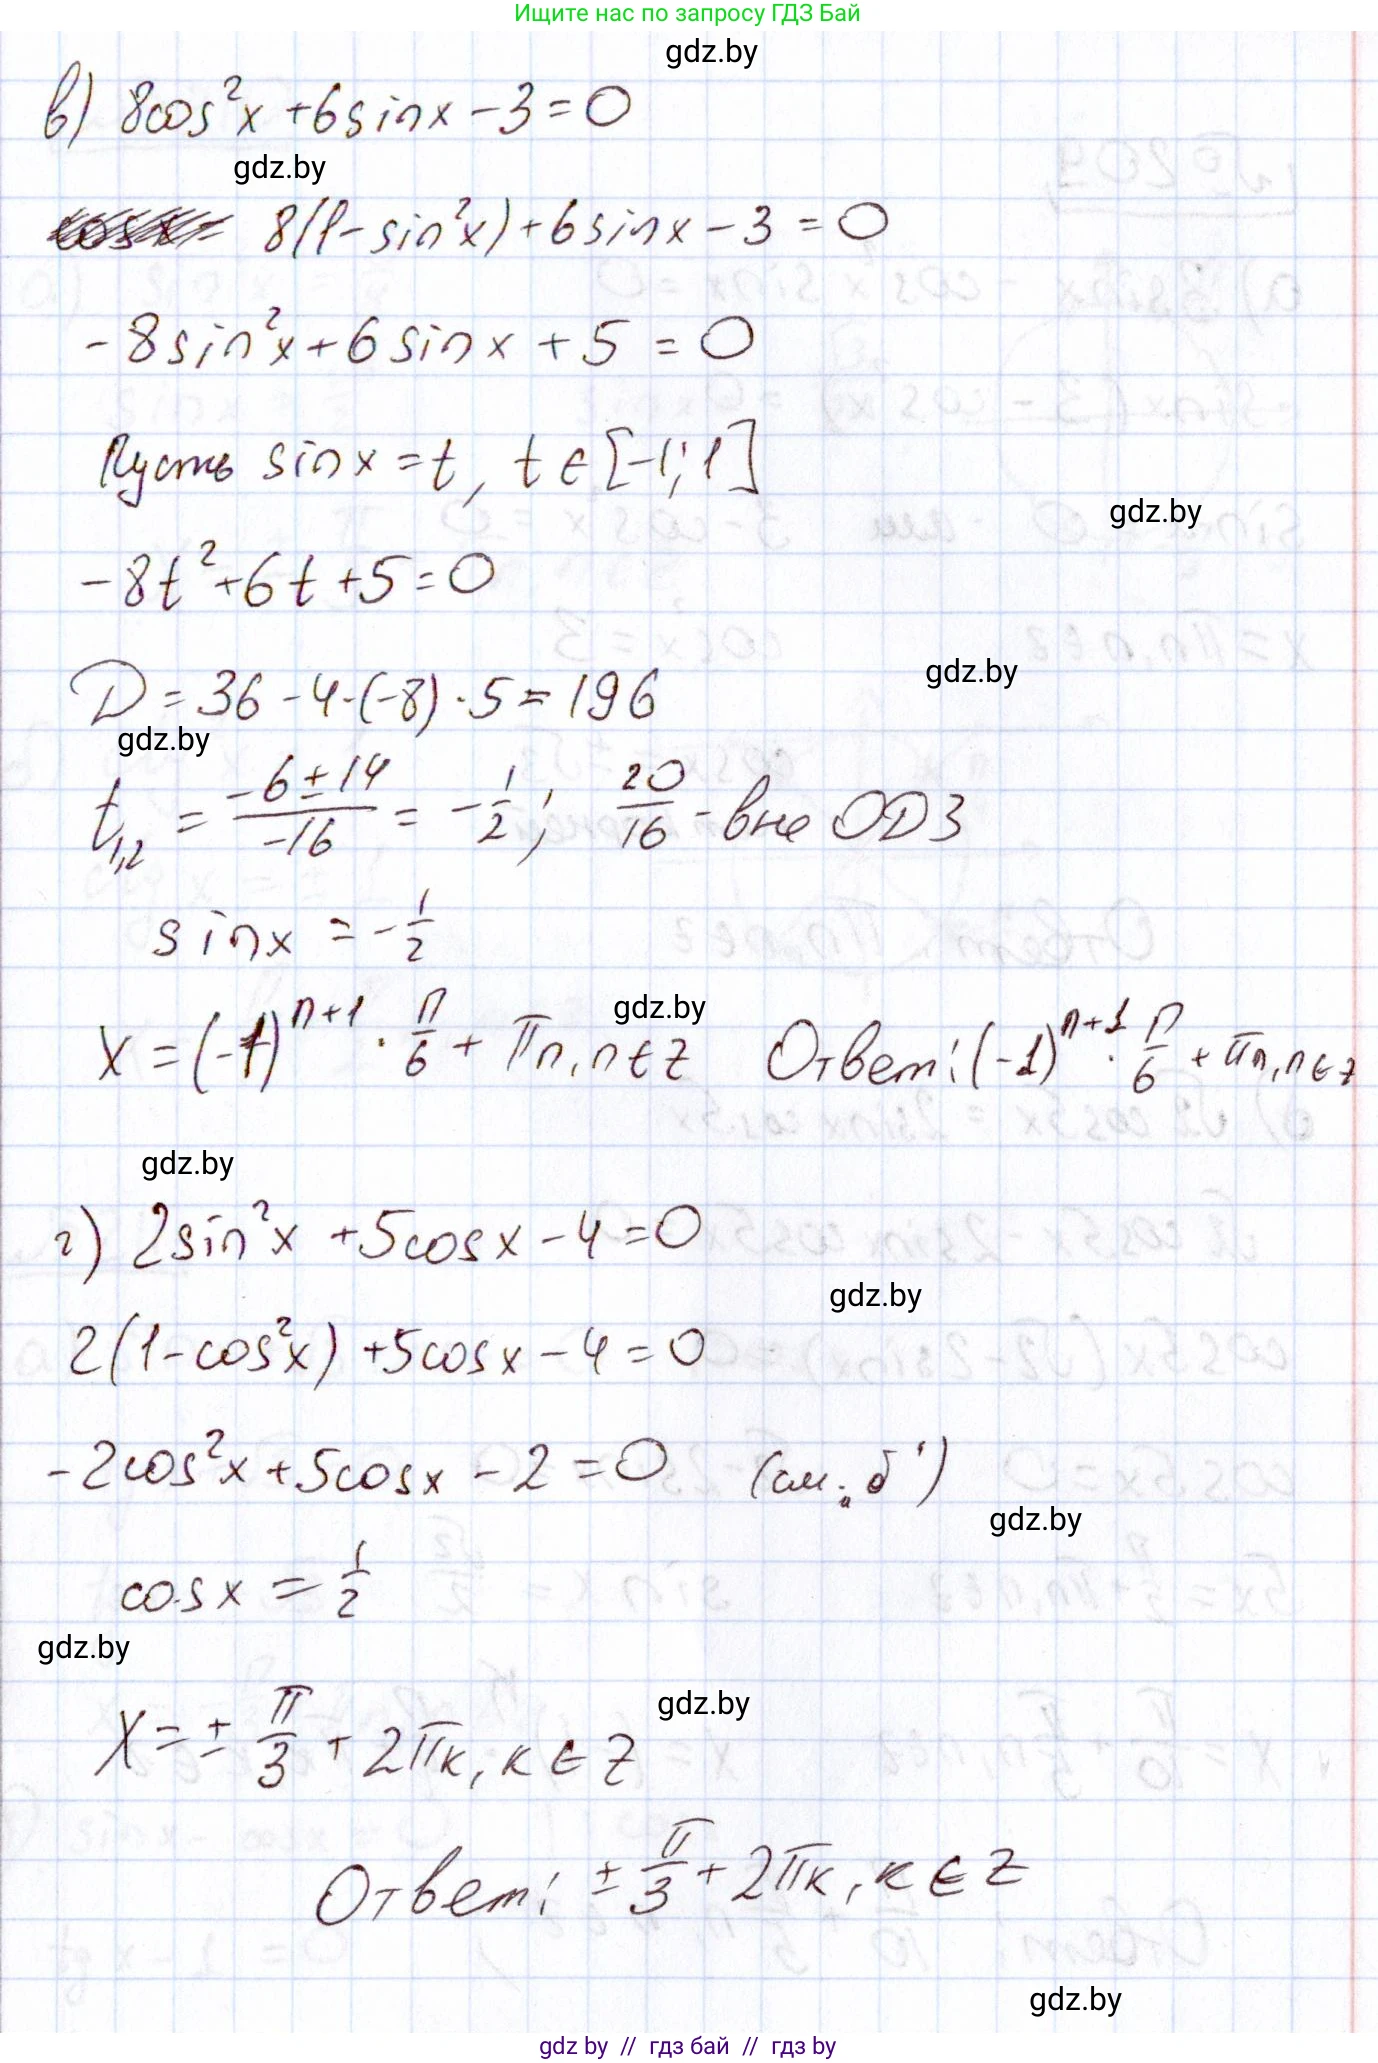 Ищите нас по запросу ГДЗ Бай
gdz.by
в) 8cos²x + 6sinx - 3 = 0
gdz.by
8(1 - sin²x) + 6sinx - 3 = 0
-8sin²x + 6sinx + 5 = 0
Пусть sinx = t, t ∈ [-1; 1]
gdz.by
-8t² + 6t + 5 = 0
gdz.by
D = 36 - 4·(-8)·5 = 196
gdz.by
t₁,₂ = (-6 ± 14)/(-16) = -1/2; 20/16 - вне ОДЗ
sinx = -1/2
gdz.by
x = (-1)ⁿ⁺¹ · π/6 + πn, n ∈ Z Ответ: (-1)ⁿ⁺¹ · π/6 + πn, n ∈ Z
gdz.by
г) 2sin²x + 5cosx - 4 = 0
gdz.by
2(1 - cos²x) + 5cosx - 4 = 0
-2cos²x + 5cosx - 2 = 0 (см. „б')
gdz.by
cosx = 1/2
gdz.by
x = ± π/3 + 2πк, к ∈ Z
gdz.by
Ответ: ± π/3 + 2πк, к ∈ Z
gdz.by
gdz by // гдз бай // гдз by